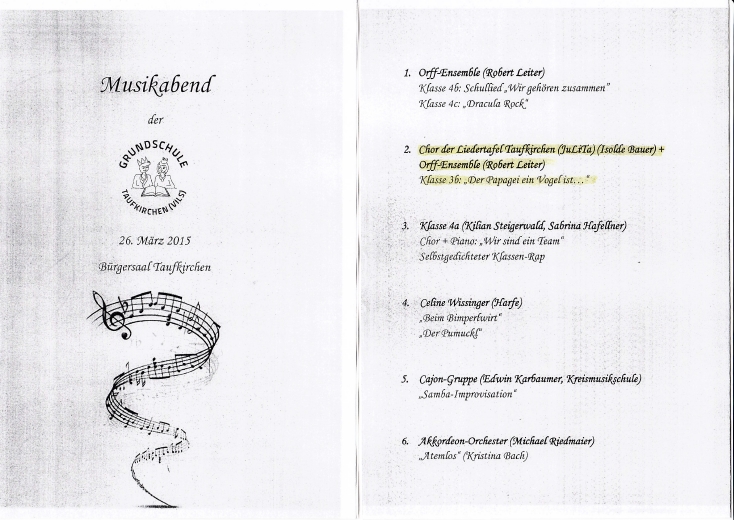 Musikabend
der
GRUNDSCHULE
TAUFKIRCHEN (VILS)
26. März 2015
Bürgersaal Taufkirchen
1. Orff-Ensemble (Robert Leiter)
Klasse 4b: Schullied „Wir gehören zusammen"
Klasse 4c: „Dracula Rock"
2. Chor der Liedertafel Taufkirchen (JuLiTa) (Isolde Bauer) +
Orff-Ensemble (Robert Leiter)
Klasse 3b: „Der Papagei ein Vogel ist…"
3. Klasse 4a (Kilian Steigerwald, Sabrina Hafellner)
Chor + Piano: „Wir sind ein Team"
Selbstgedichteter Klassen-Rap
4. Celine Wissinger (Harfe)
„Beim Bimperlwirt"
„Der Pumuckl"
5. Cajon-Gruppe (Edwin Karbaumer, Kreismusikschule)
„Samba-Improvisation"
6. Akkordeon-Orchester (Michael Riedmaier)
„Atemlos" (Kristina Bach)